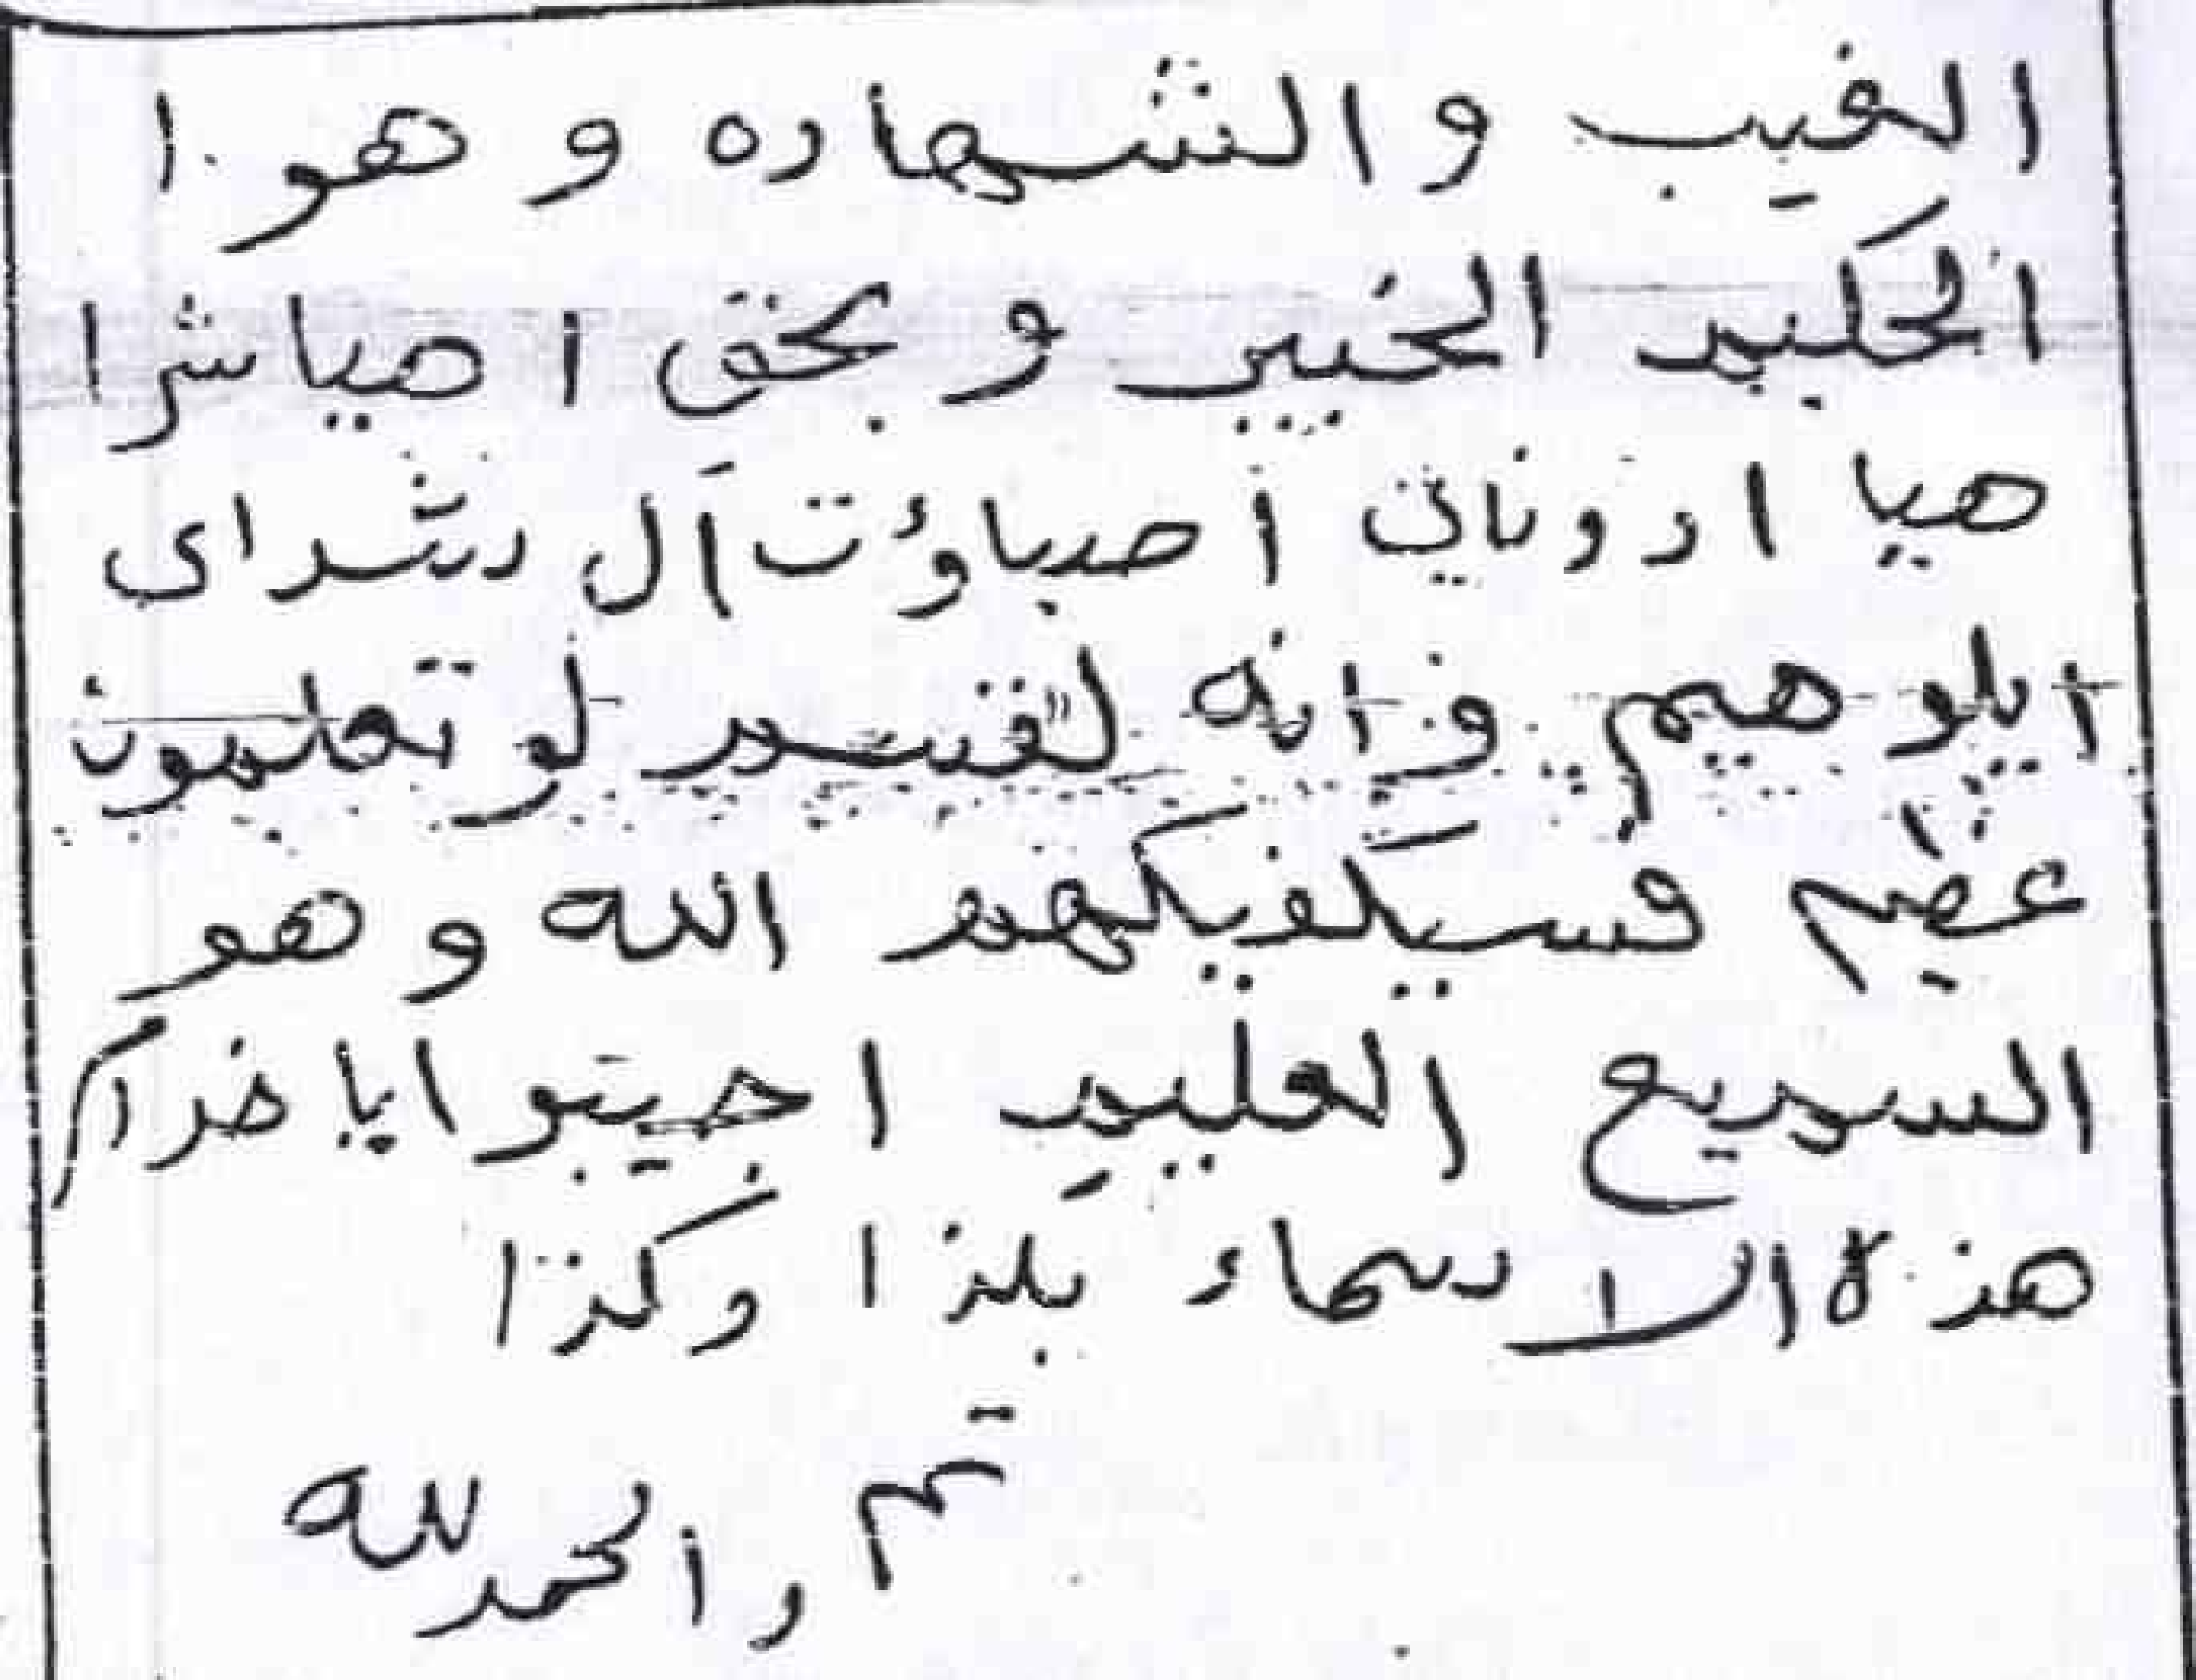 الغيب والشهاده و هو ا
الحكيم الخبير و بحق اهياشرا
هيا ادوناي أصباؤت آل شداى
ايلوهيم وانه لقسم لو تعلمون
عضيم فسيكفيكهم الله وهو
السميع العليم اجيبو ايا خدام
هذه الاسماء بكذا وكذا
تم والحمدلله